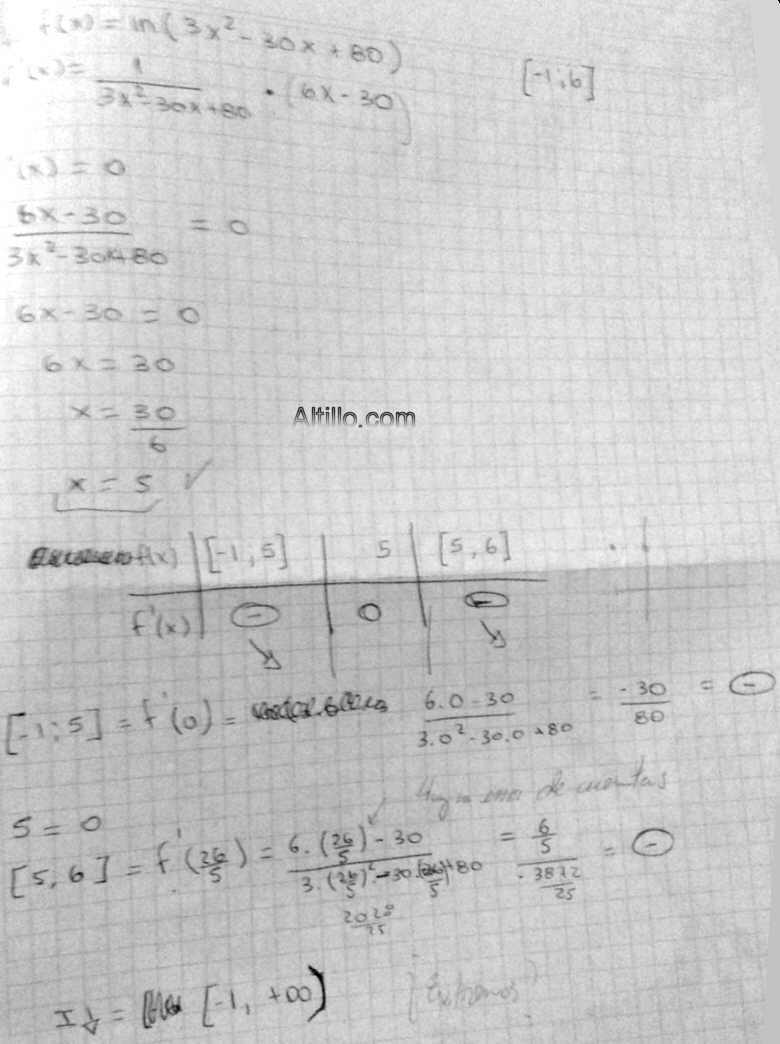 f(x) = ln(3x² - 30x + 80) [-1;6]
'(x) = 1/(3x² - 30x + 80) · (6x - 30)
'(x) = 0
(6x - 30)/(3x² - 30x + 80) = 0
6x - 30 = 0
6x = 30
x = 30/6
Altillo.com
x = 5 ✓
f(x) | [-1,5] | 5 | [5,6]
f'(x) | ⊖ ↘ | 0 | ⊖ ↘
[-1;5] = f'(0) = (6.0 - 30)/(3.0² - 30.0 + 80) = -30/80 = ⊖
de cuentas
5 = 0
[5,6] = f'(26/5) = (6.(26/5) - 30)/(3.(26/5)² - 30.(26/5) + 80) = (6/5)/(-3872/25) = ⊖
2028/25
I↓ = [-1, +∞)
Extremos